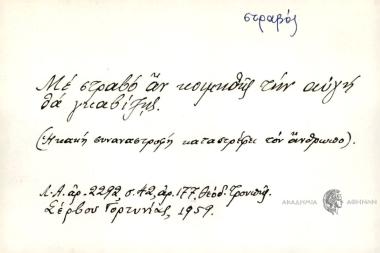 στραβός
Μέ στραβό ἄν κοιμηθῇς τήν αὐγή
θά γκαβίζῃς.
(Ἡ κακή συναναστροφή καταστρέφει τόν ἄνθρωπο).
Λ.Α. ἀρ. 2292, σ. 42, ἀρ. 177, Θεόδ.
Σέρβου Γορτυνίας, 1959.
ΑΚΑΔΗΜΙΑ ΑΘΗΝΩΝ